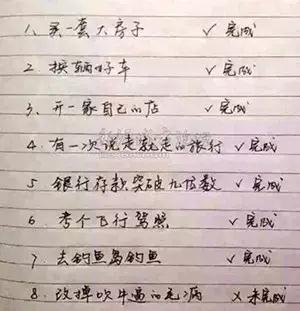 1、买一套大房子 ✓完成
2、换辆好车 ✓完成
3、开一家自己的店 ✓完成
4、有一次说走就走的旅行 ✓完成
5 银行存款突破九位数 ✓完成
6 考个飞行驾照 ✓完成
7、去钓鱼岛钓鱼 ✓完成
8、改掉吹牛逼的毛病 ×未完成